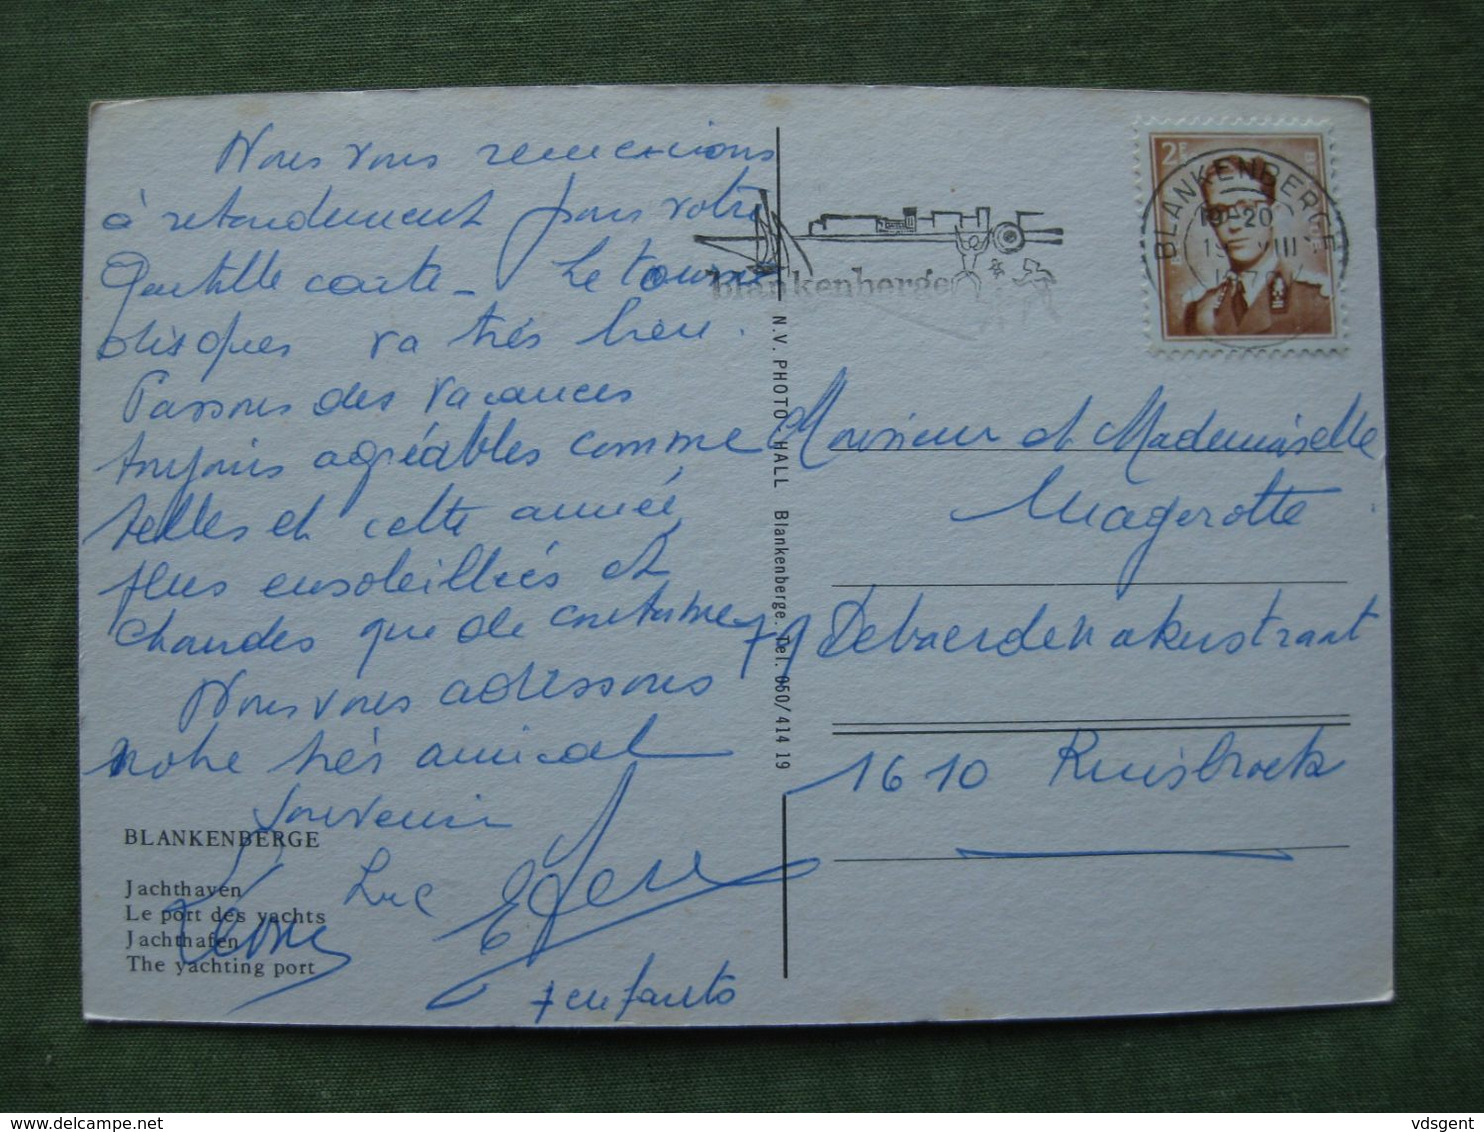 Nous vous remercions
à retardement pour votre
Gentille carte - Le tourne
disques va très bien.
Passons des vacances
toujours agréables comme
telles et cette année
plus ensoleillées et
chaudes que de coutume
Nous vous adressons
notre très amical
souvenir
Luc
+ enfants
BLANKENBERGE
Jachthaven
Le port des yachts
Jachthafen
The yachting port
N.V. PHOTO-HALL Blankenberge. Tel. 050/414 19
blankenberge
BLANKENBERGE
19-20
2F
Monsieur et Mademoiselle
Magerotte
79 Debaerdemakerstraat
1610 Ruisbroek
vdsgent
delcampe.net